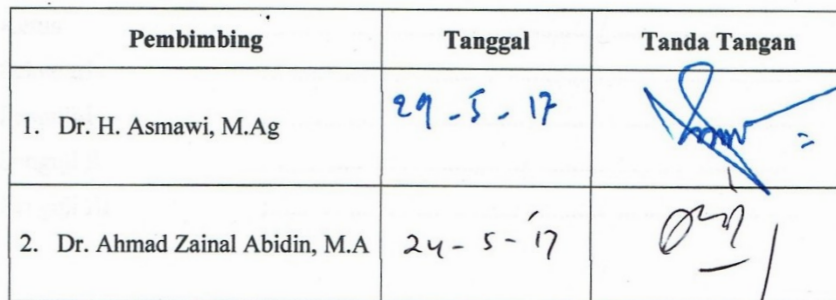 Pembimbing Tanggal Tanda Tangan
1. Dr. H. Asmawi, M.Ag 29 - 5 - 17
2. Dr. Ahmad Zainal Abidin, M.A 24 - 5 - 17